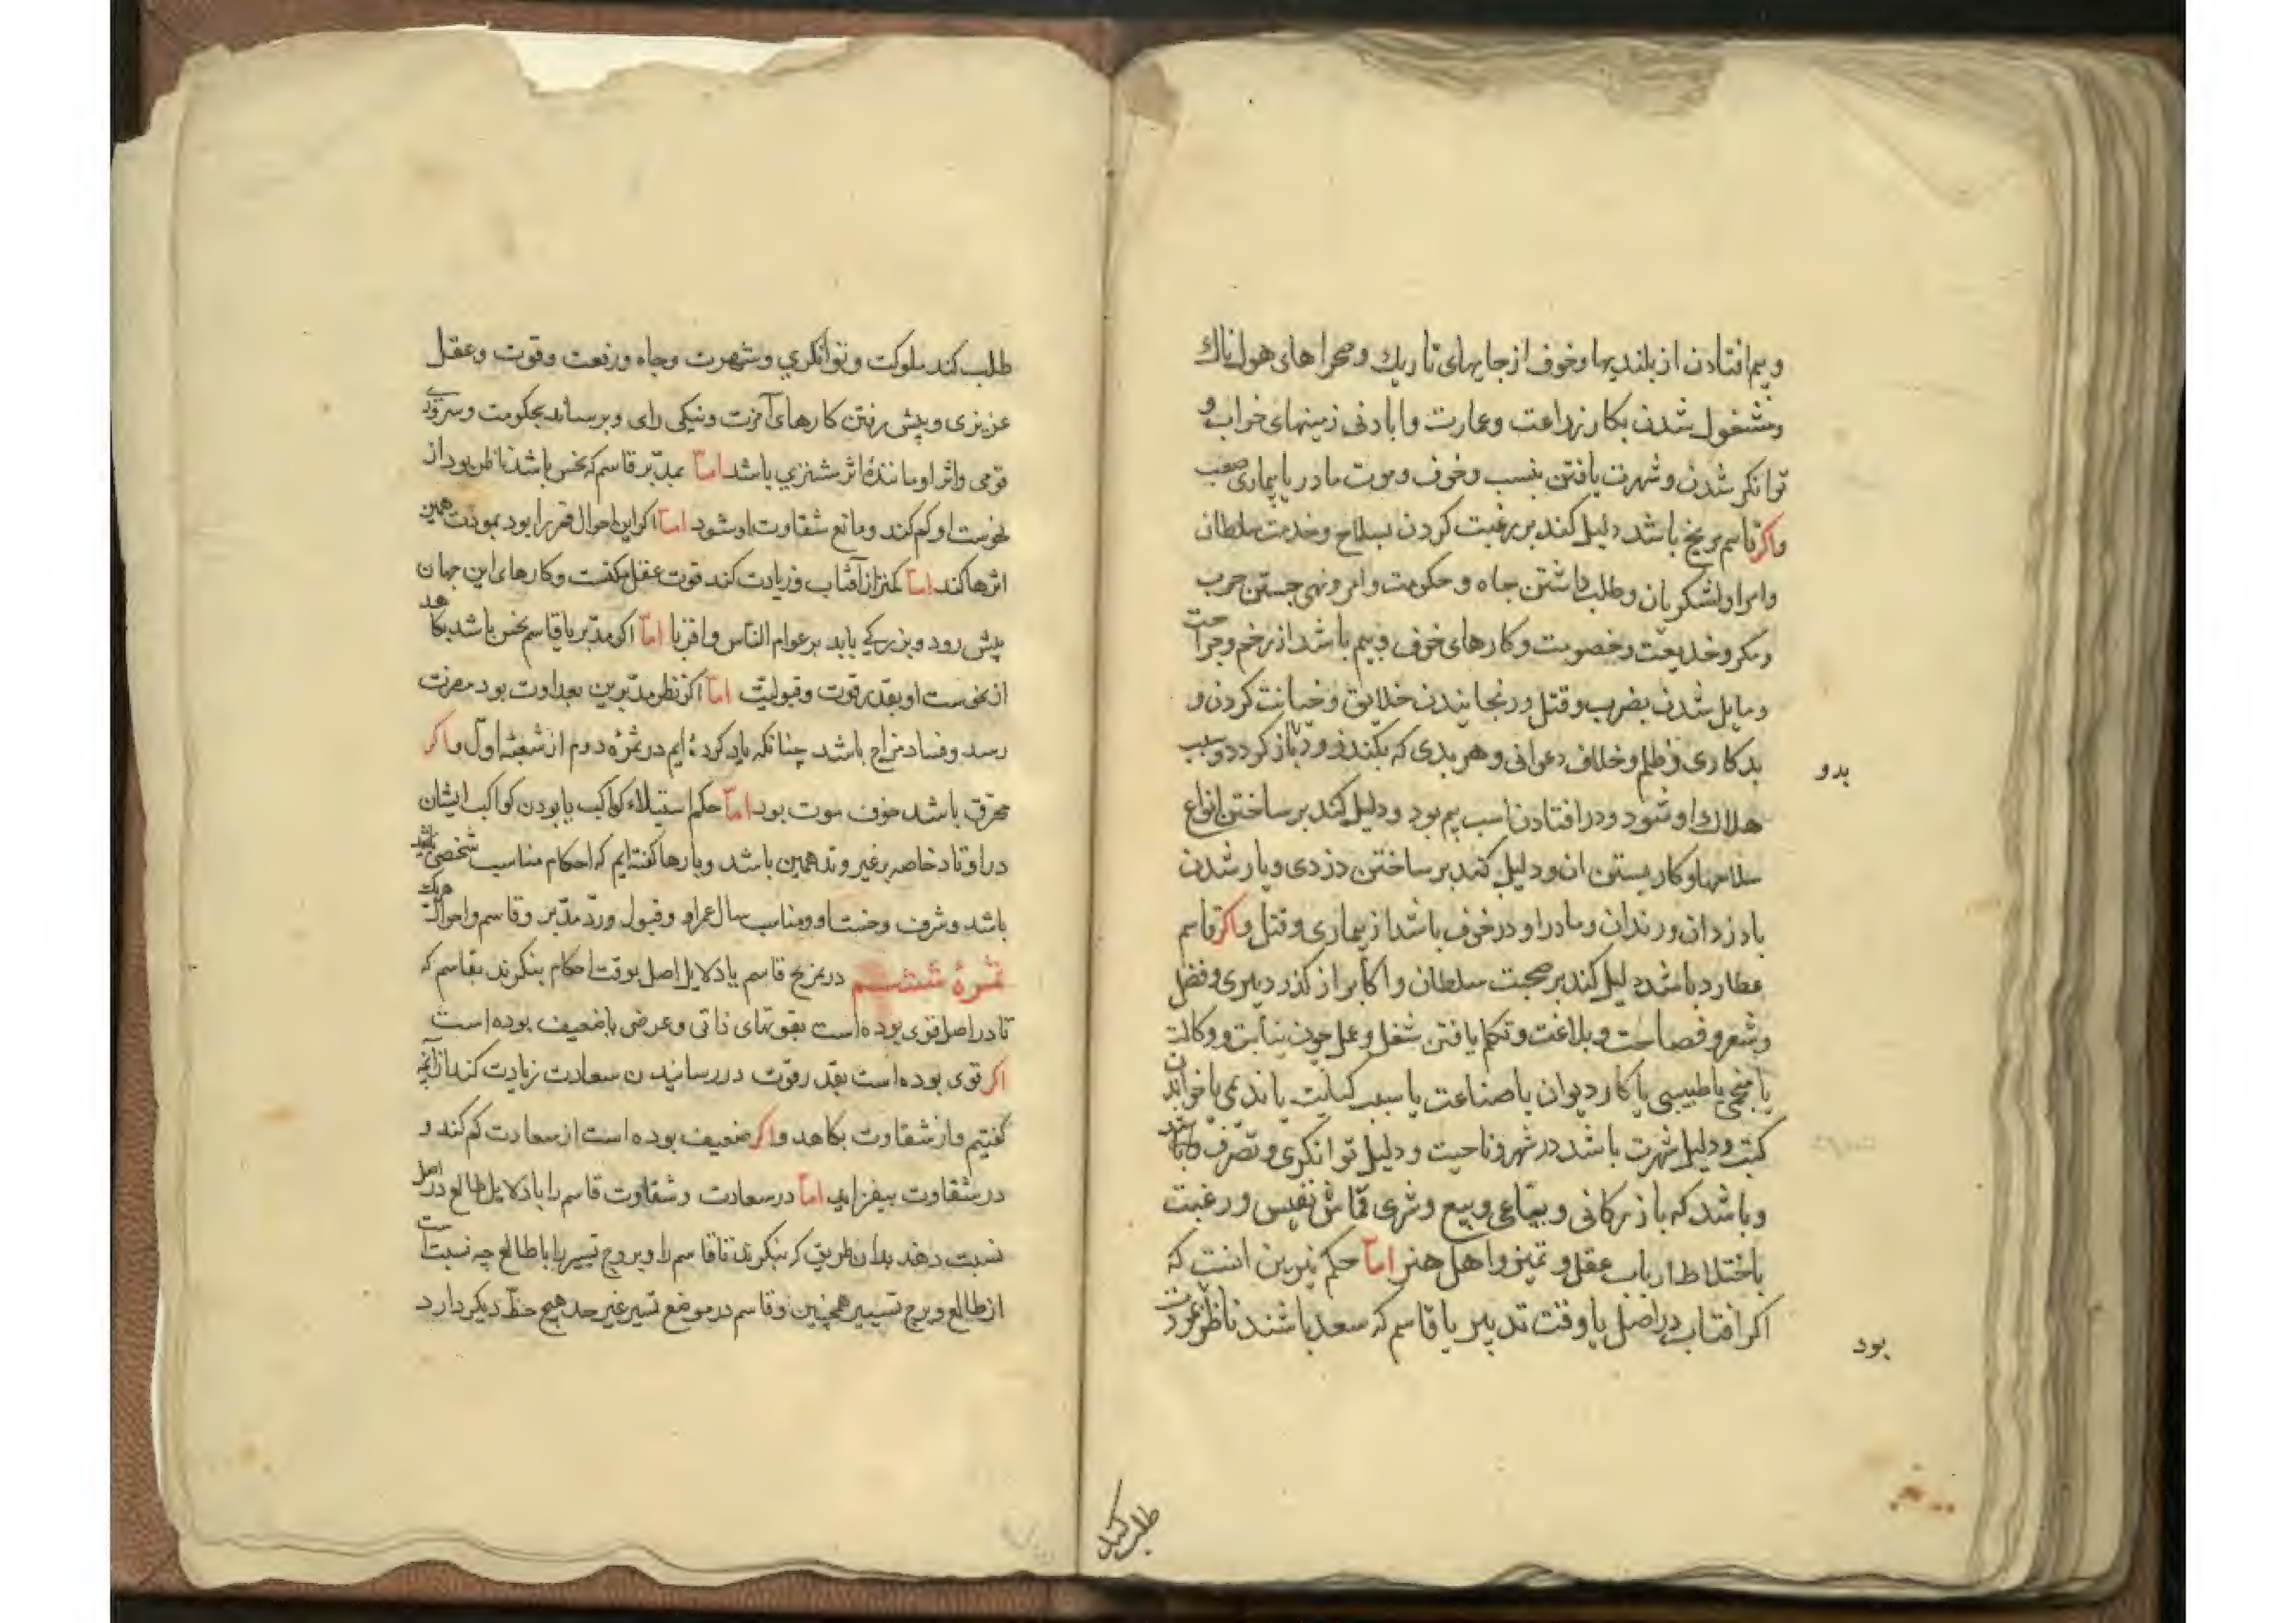 وبیم افتادن از بلندیها وخوف از جایهای تاریك وصحراهای هولناك
ومشغول شدن بكار زراعت وعمارت وابادنی زمینهای خراب و
توانكر شدن وشهرت یافتن بنسب وخوف وموت مادر یا بیماری صعب
واكر قاسم مریخ باشد دلیل كند بر رغبت كردن بسلاح وخدمت سلطان
وامرا ولشكریان وطلب داشتن جاه وحكومت وامر ونهی جستن حرب
ومكر وخدیعت وخصومت وكارهای خوف وبیم باشد از زخم وجراحت
ومایل شدن بضرب وقتل ورنجانیدن خلایق وخیانت كردن و
بدكاری وظلم وخلاف دعوانی وهر بدی كه بكند زود باز كردد وسبب
بدو
هلاك او شود ودر افتادن اسب بیم بود ودلیل كند بر ساختن انواع
سلاحها وكار بستن ان ودلیل كند بر ساختن دزدی ویار شدن
با دزدان ورندان ومادر او در خوف باشد از بیماری وقتل واكر قاسم
عطارد باشد دلیل كند بر صحبت سلطان واكابر از كذر دبیری وفضل
وشعر وفصاحت وبلاغت وتكلم یافتن شغل وعمل چون نیابت ووكالت
یا منجمی یا طبیبی یا كار دیوان یا صناعت یا سبب كتابت یا ندیمی یا خواندن
كتب ودلیل شهرت باشد در شهر وناحیت ودلیل توانكری وتصرف باشد
وباشد كه بازركانی وبیاعی وبیع وشری قماش نفیس ورغبت
باختلاط ارباب عقل وتمیز واهل هنر اما حكم نیرین انست كه
اكر افتاب در اصل یا وقت تدبیر یا قاسم كه سعد باشند ناظر
بود
طلب كند
طلب كند ملوكت وتوانكری وشهرت وجاه ورفعت وقوت وعقل
عزیزی وپیش رفتن كارهای آخرت ونیكی رای وبرساند بحكومت وسروری
قومی واثر او مانندهٔ اثر مشتری باشد اما بمدبر قاسم كه نحس باشد ناظر بود از
نحوست او كم كند ومانع شقاوت او شود اما اكر این احوال قمر را بود بمودت همین
اثرها كند اما كمتر از آفتاب وزیادت كند قوت عقل وكفت وكارهای این جهان
پیش رود وبزركی یابد بر عوام الناس واقربا اما اكر مدبر یا قاسم نحس باشد بكاهد
از نحوست او بقدر قوت وقبولیت اما اكر نظر مدبرین بعداوت بود مضرت
رسد وفساد مزاج باشد چنانكه یاد كرده ایم در ثمرهٔ دوم از شعبهٔ اول واكر
محترق باشد خوف موت بود اما حكم استیلاء كواكب یا بودن كواكب ایشان
در اوتاد خاصه بر غیر وتد همین باشد وبارها كفته ایم كه احكام مناسب شخصی باشد
باشد وشرف وخست او ومناسب سال عمر او وقبول ورد مدبر وقاسم واحوال هریك
ثمرهٔ ششم در تمزیج قاسم با دلایل اصل بوقت احكام بنكرند بقاسم كه
تا در اصل قوی بوده است بقوتهای ذاتی وعرضی یا ضعیف بوده است
اكر قوی بوده است بقدر قوت در رسانیدن سعادت زیادت كند از آنچه
كفتیم واز شقاوت بكاهد واكر ضعیف بوده است از سعادت كم كند و
در شقاوت بیفزاید اما در سعادت وشقاوت قاسم را با دلایل طالع در اصل
نسبت دهند بدان طریق كه بنكرند تا قاسم را وبروج تسییر را با طالع چه نسبت است
از طالع وبرج تسییر همچنین وقاسم در موضع تسییر غیر حد هیچ حظ دیكر دارد